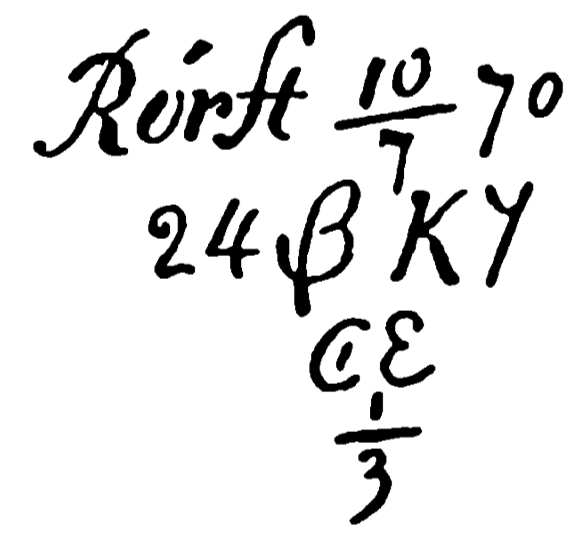 Rórft 10/7 70
24 β K Y
C E
1/3